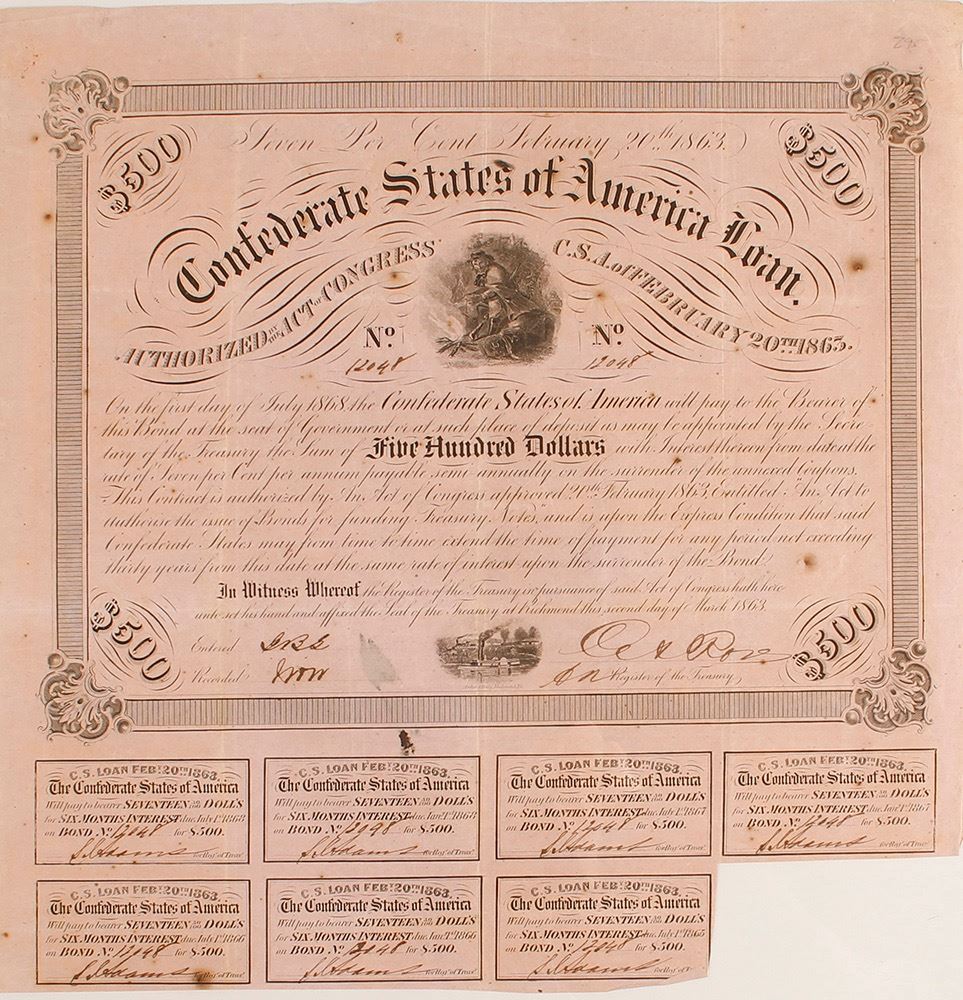 $500
Seven Per Cent February 20th 1863.
$500
Confederate States of America Loan.
AUTHORIZED BY THE ACT OF CONGRESS C.S.A. of FEBRUARY 20TH 1863.
No. No.
12048 12048
On the first day of July 1868 the Confederate States of America will pay to the Bearer of
this Bond at the seat of Government or at such place of deposit as may be appointed by the Secre-
tary of the Treasury the Sum of Five Hundred Dollars with Interest thereon from date at the
rate of Seven per Cent per annum payable semi-annually on the surrender of the annexed Coupons.
This Contract is authorized by An Act of Congress approved 20th February 1863, Entitled "An Act to
authorise the issue of Bonds for funding Treasury Notes," and is upon the Express Condition that said
Confederate States may from time to time extend the time of payment for any period not exceeding
thirty years from this date at the same rate of interest upon the surrender of the Bond.
In Witness Whereof the Register of the Treasury in pursuance of said Act of Congress hath here-
unto set his hand and affixed the Seal of the Treasury at Richmond this second day of March 1863.
$500
Entered
Recorded
Register of the Treasury
$500
C.S. LOAN FEB: 20TH 1863.
The Confederate States of America
Will pay to bearer SEVENTEEN DOLLS
for SIX MONTHS INTEREST due July 1st 1868
on BOND No. 12048 for $500.
S. Adams for Reg.r of Treas.y
C.S. LOAN FEB: 20TH 1863.
The Confederate States of America
Will pay to bearer SEVENTEEN DOLLS
for SIX MONTHS INTEREST due Jan. 1st 1868
on BOND No. 12048 for $500.
S. Adams for Reg.r of Treas.y
C.S. LOAN FEB: 20TH 1863.
The Confederate States of America
Will pay to bearer SEVENTEEN DOLLS
for SIX MONTHS INTEREST due July 1st 1867
on BOND No. 12048 for $500.
S. Adams for Reg.r of Treas.y
C.S. LOAN FEB: 20TH 1863.
The Confederate States of America
Will pay to bearer SEVENTEEN DOLLS
for SIX MONTHS INTEREST due Jan. 1st 1867
on BOND No. 12048 for $500.
S. Adams for Reg.r of Treas.y
C.S. LOAN FEB: 20TH 1863.
The Confederate States of America
Will pay to bearer SEVENTEEN DOLLS
for SIX MONTHS INTEREST due July 1st 1866
on BOND No. 12048 for $500.
S. Adams for Reg.r of Treas.y
C.S. LOAN FEB: 20TH 1863.
The Confederate States of America
Will pay to bearer SEVENTEEN DOLLS
for SIX MONTHS INTEREST due Jan. 1st 1866
on BOND No. 12048 for $500.
S. Adams for Reg.r of Treas.y
C.S. LOAN FEB: 20TH 1863.
The Confederate States of America
Will pay to bearer SEVENTEEN DOLLS
for SIX MONTHS INTEREST due July 1st 1865
on BOND No. 12048 for $500.
S. Adams for Reg.r of T